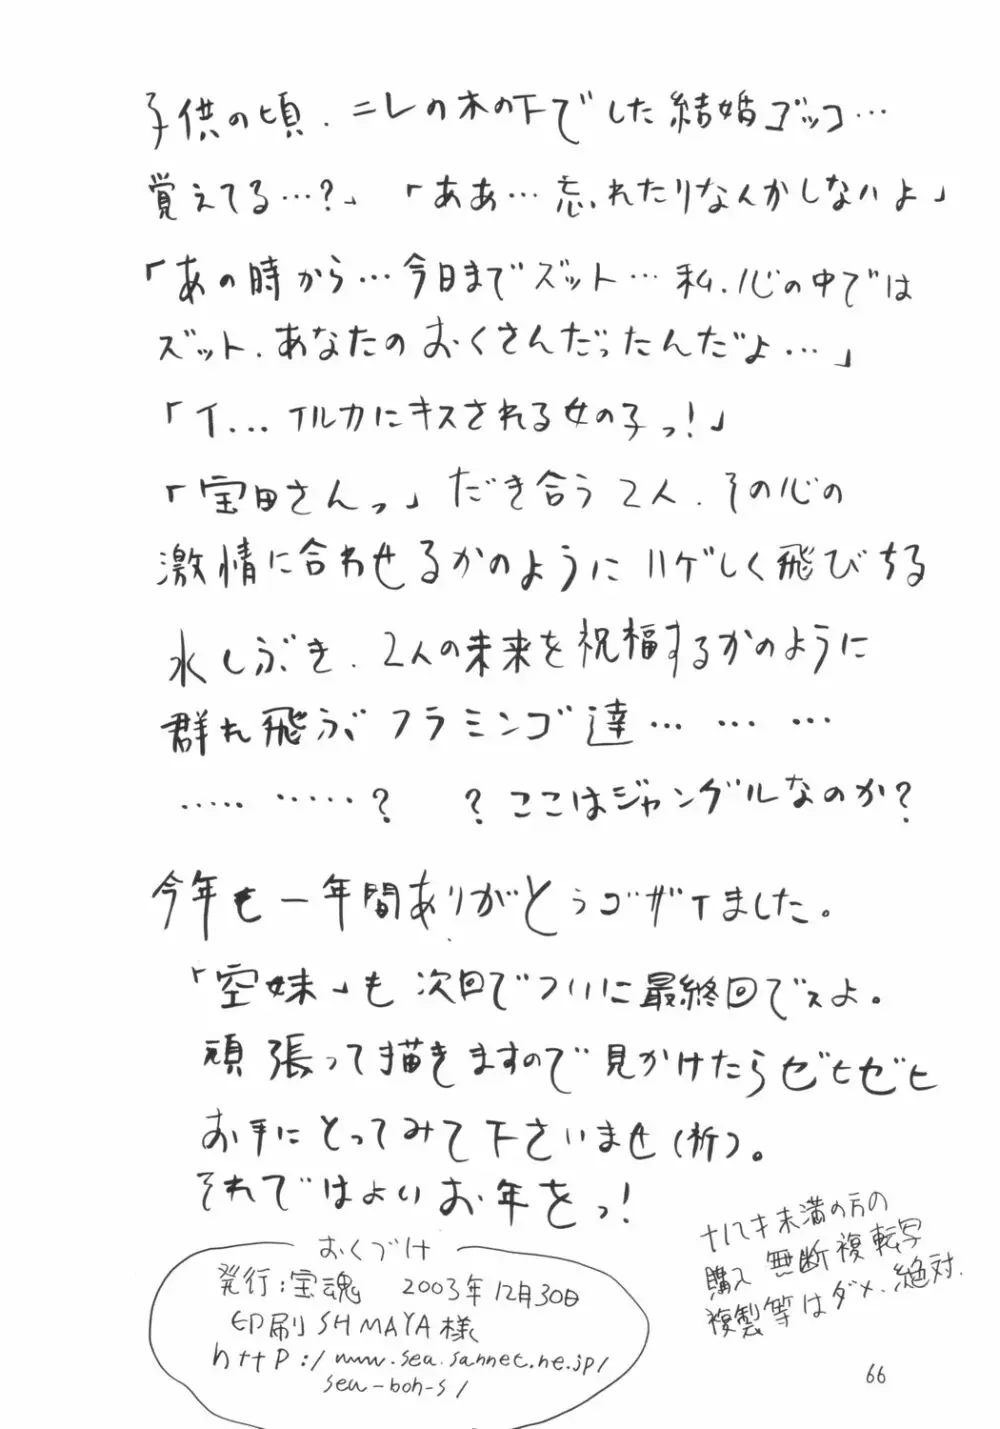 子供の頃、ニレの木の下でした結婚ゴッコ…
覚えてる…?」「ああ…忘れたりなんかしないよ」
「あの時から…今日までズット…私、心の中では
ズット、あなたのおくさんだったんだよ…」
「イ...イルカにキスされる女の子っ!」
「宝田さんっ」だき合う2人、その心の
激情に合わせるかのようにハゲしく飛びちる
水しぶき、2人の未来を祝福するかのように
群れ飛ぶフラミンゴ達… … …
…… ……? ?ここはジャングルなのか?
今年も一年間ありがとうゴザイました。
「空妹」も次回でついに最終回でスよ。
頑張って描きますので見かけたらゼヒゼヒ
お手にとってみて下さいませ(祈)。
それではよいお年をっ!
おくづけ
発行:宝魂 2003年12月30日
印刷SHMAYA様
http:/www.sea.sannet.ne.jp/
sea-boh-s/
十八才未満の方の
購入 無断複転写
複製等はダメ、絶対.
66